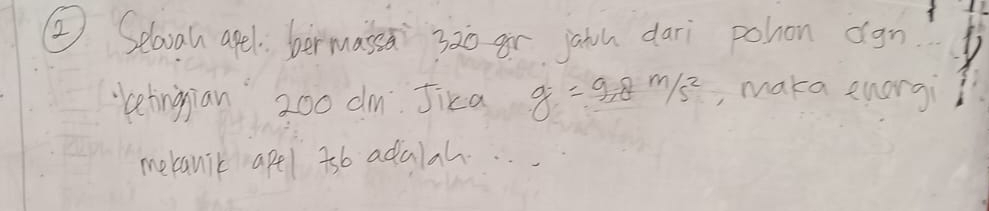 ② Sebuah apel bermassa 320 gr jatuh dari pohon dgn
ketinggian 200 dm. Jika g = 9,8 m/s², maka energi
mekanik apel tsb adalah ...